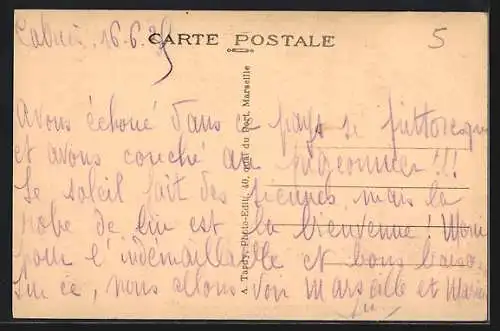 Cabriès, 16.6.35
CARTE POSTALE
5
Avons échoué dans ce pays si pittoresque
et avons couché au pigeonnier !!!
Le soleil fait des siennes, mais la
robe de lin est la bienvenue ! Merci
pour l'indémaillable et bons baisers.
Sur ce, nous allons voir Marseille et Marius
A. Tardy, Photo-Edit., 40, quai du Port, Marseille